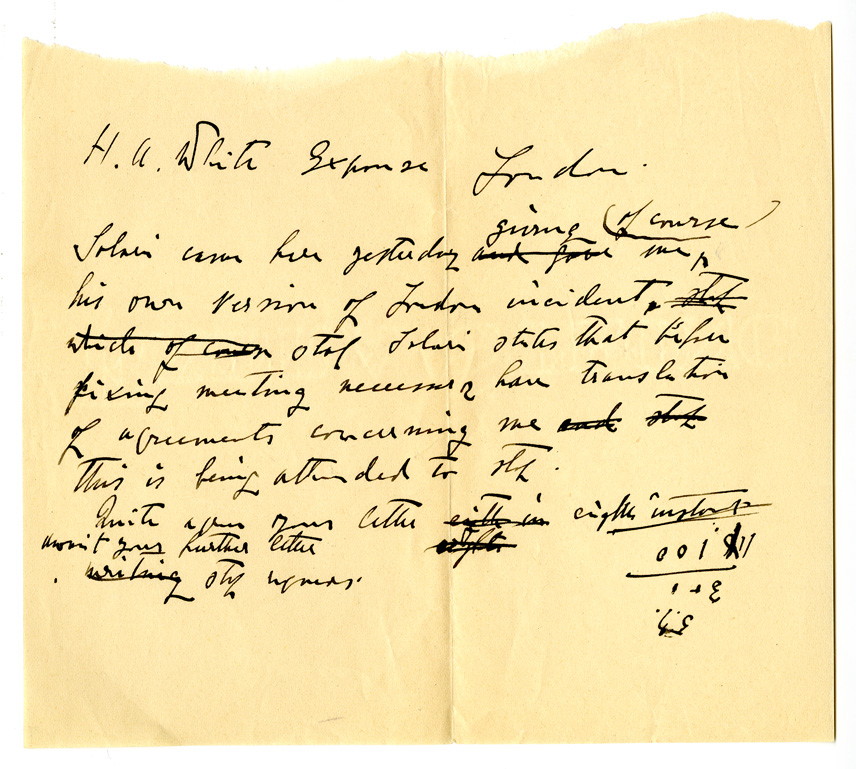 H. A. White Expanse London.
giving (of course)
Solari came here yesterday and gave me,
his own version of London incident, stop
which of course stop Solari states that before
fixing meeting necessary have translation
of agreements concerning me and stop
this is being attended to stop.
Quite agree your letter eighth instant
await your further letter
writing stop regards.